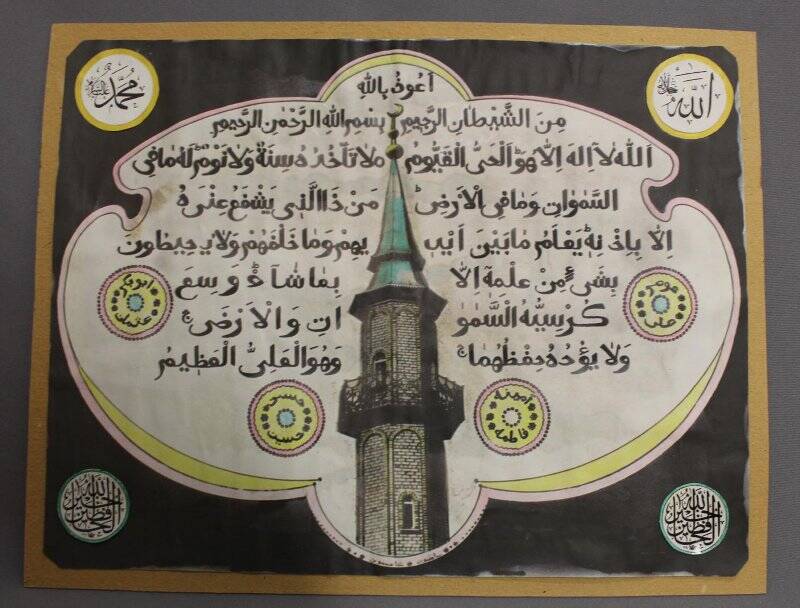 الله
محمد
اعوذ بالله
من الشيطان الرجيم بسم الله الرحمن الرحيم
الله لا اله الا هو الحى القيوم لا تأخذه سنة ولا نوم له ما فى
السموات وما فى الارض من ذا الذى يشفع عنده
الا باذنه يعلم ما بين ايديهم وما خلفهم ولا يحيطون
بشىء من علمه الا بما شاء وسع
كرسيه السموات والارض
ولا يؤده حفظهما وهو العلى العظيم
عمر
على
ابوبكر
عثمان
امينة
فاطمه
حسن
حسين